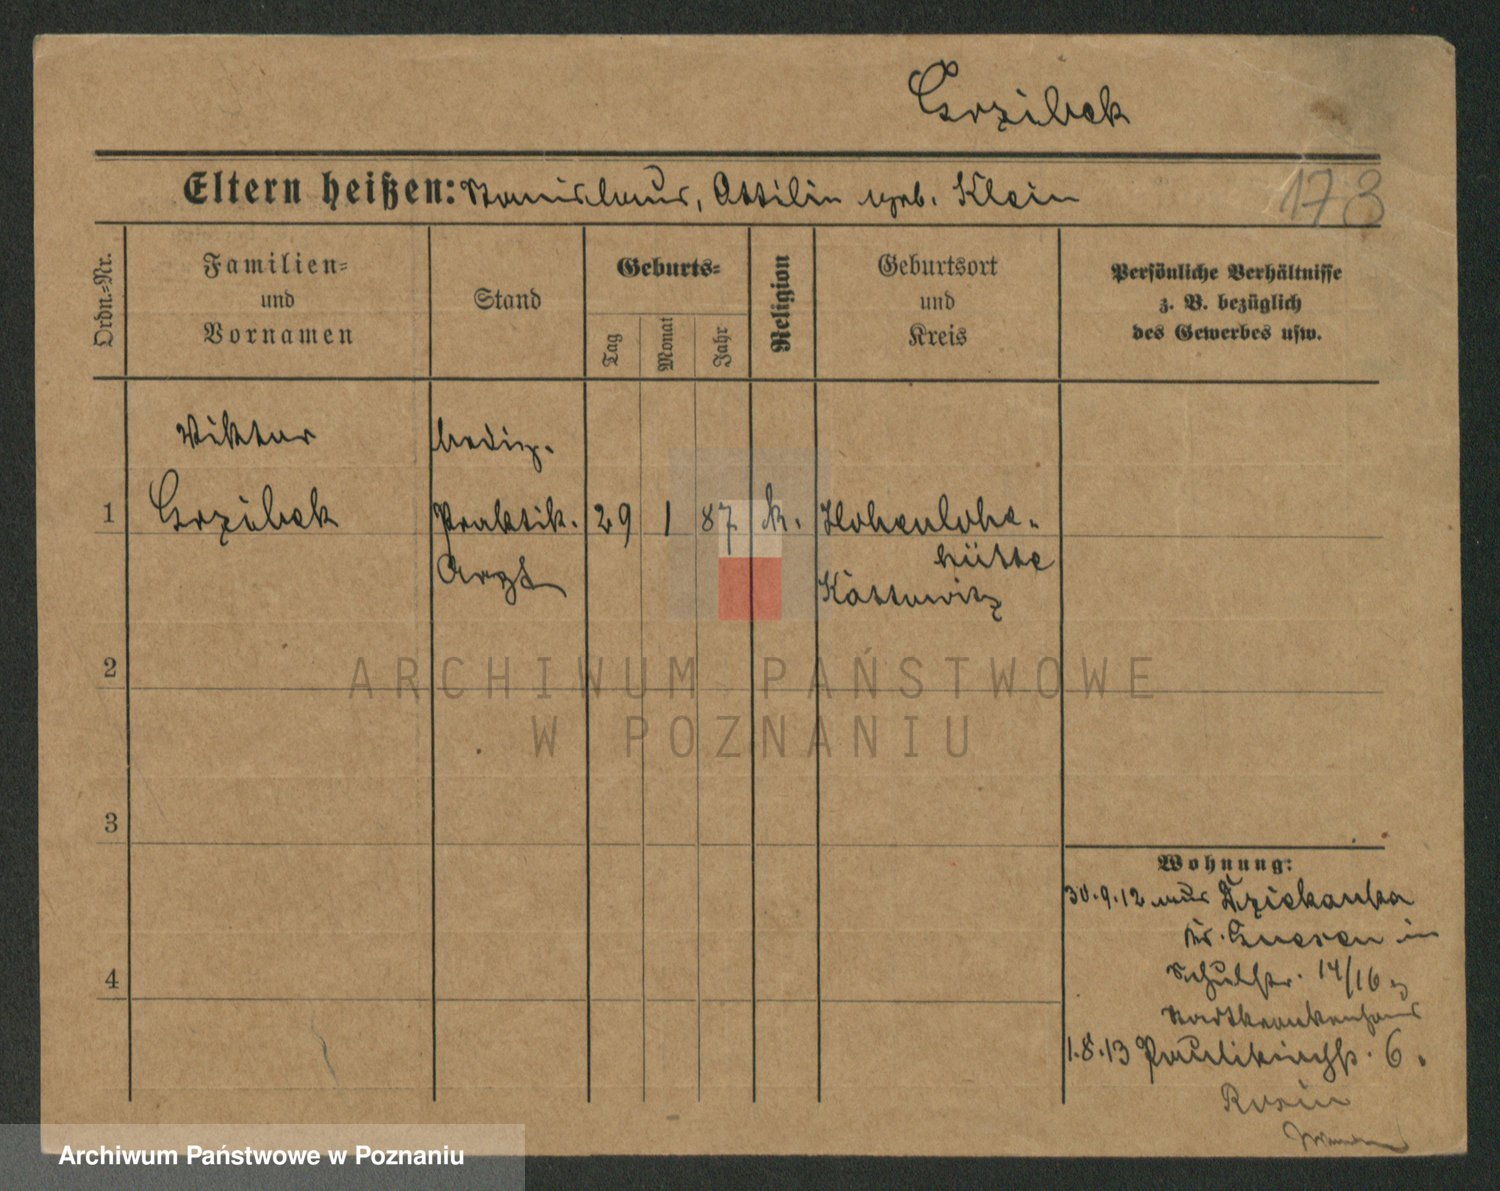 Grzibek
Eltern heißen: Stanislaus, Ottilie geb. Klein
173
Ordn.=Nr.
Familien=
und
Vornamen
Stand
Geburts=
Tag
Monat
Jahr
Religion
Geburtsort
und
Kreis
Persönliche Verhältnisse
z. B. bezüglich
des Gewerbes usw.
1
Viktor
Grzibek
Mediz.
Praktik.
Arzt
29
1
87
k.
Hohenlohe-
hütte
Kattowitz
2
3
4
Wohnung:
30.9.12 aus Dziekanka
Kr. Gnesen in
Schulstr. 14/16
Stadtkrankenhaus
1.8.13 Paulikirchstr. 6.
ARCHIWUM PAŃSTWOWE
W POZNANIU
Archiwum Państwowe w Poznaniu